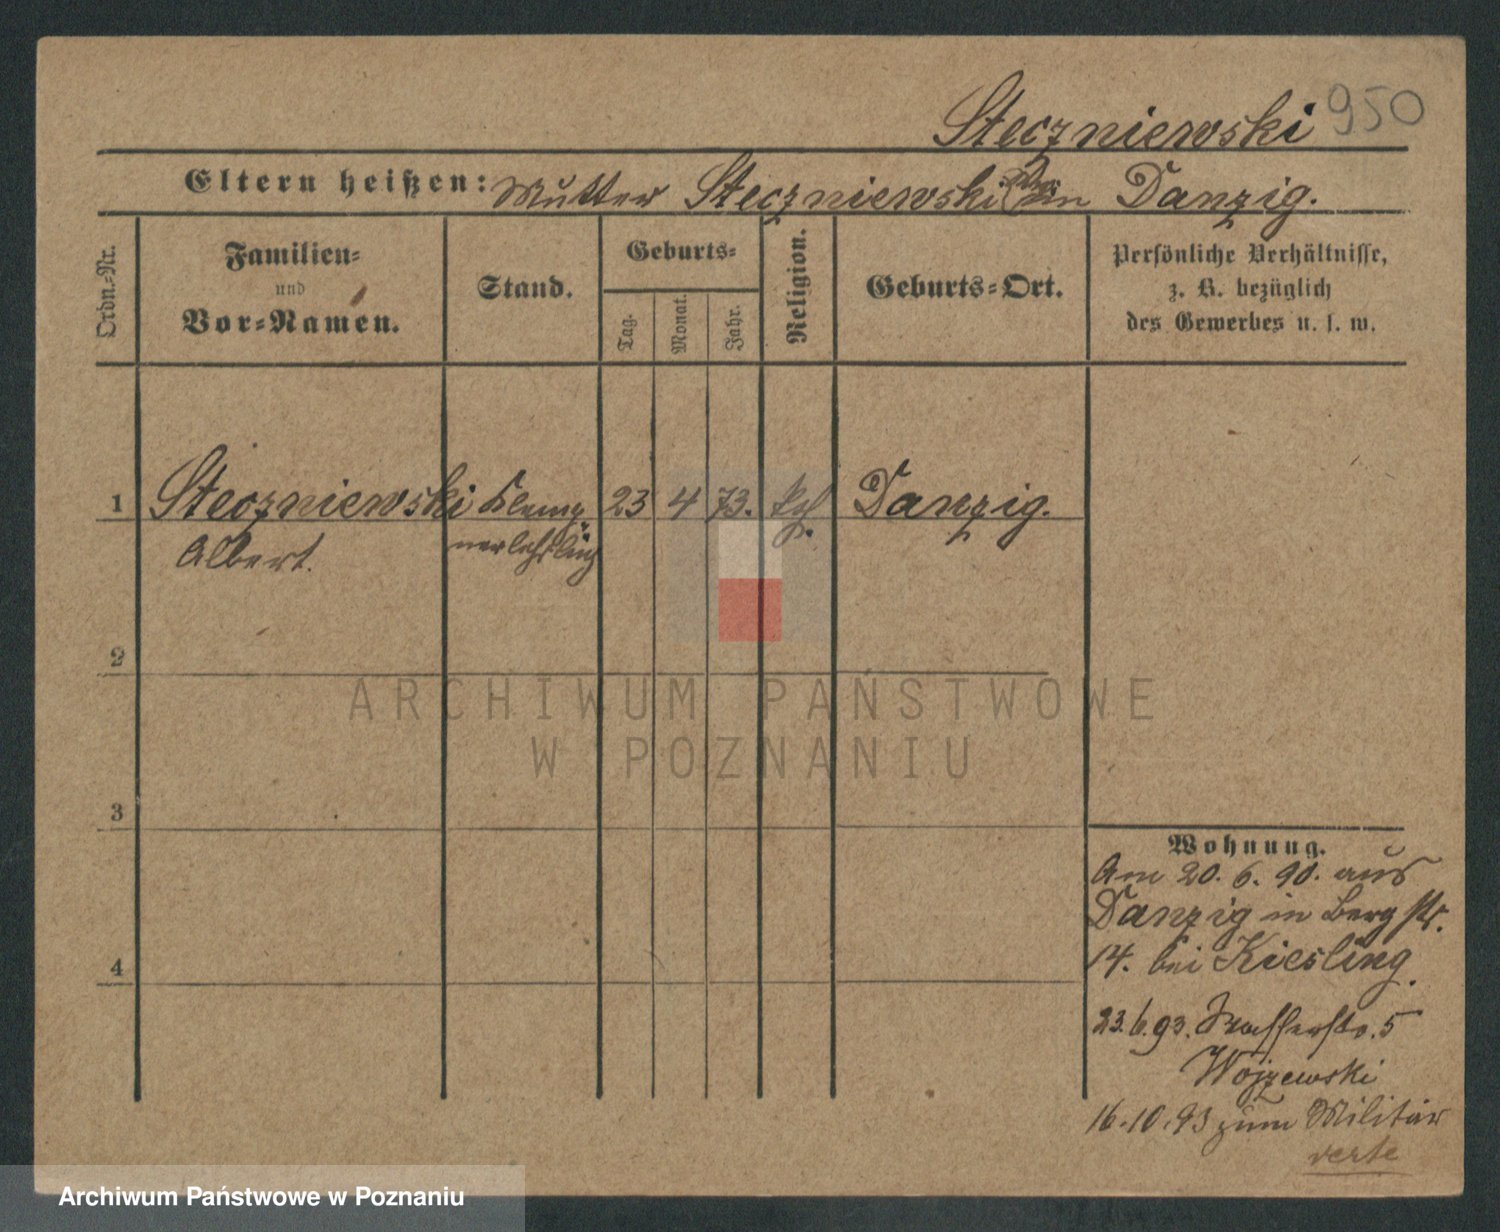 Steczniewski 950
Eltern heißen: Mutter Steczniewski in Danzig.
Ordn.-Nr.
Familien-
und
Vor-Namen.
Stand.
Geburts-
Tag.
Monat.
Jahr.
Religion.
Geburts-Ort.
Persönliche Verhältnisse,
z. B. bezüglich
des Gewerbes u. s. w.
1 Steczniewski Klemp- 23 4 73. Danzig.
Albert. nerlehrling
2
3
4
Wohnung.
Am 20. 6. 90. aus
Danzig in Bergstr.
14. bei Kiesling.
23.6.93. Wasserstr. 5
Wojzewski
16.10.93 zum Militär
verte
ARCHIWUM PAŃSTWOWE
W POZNANIU
Archiwum Państwowe w Poznaniu